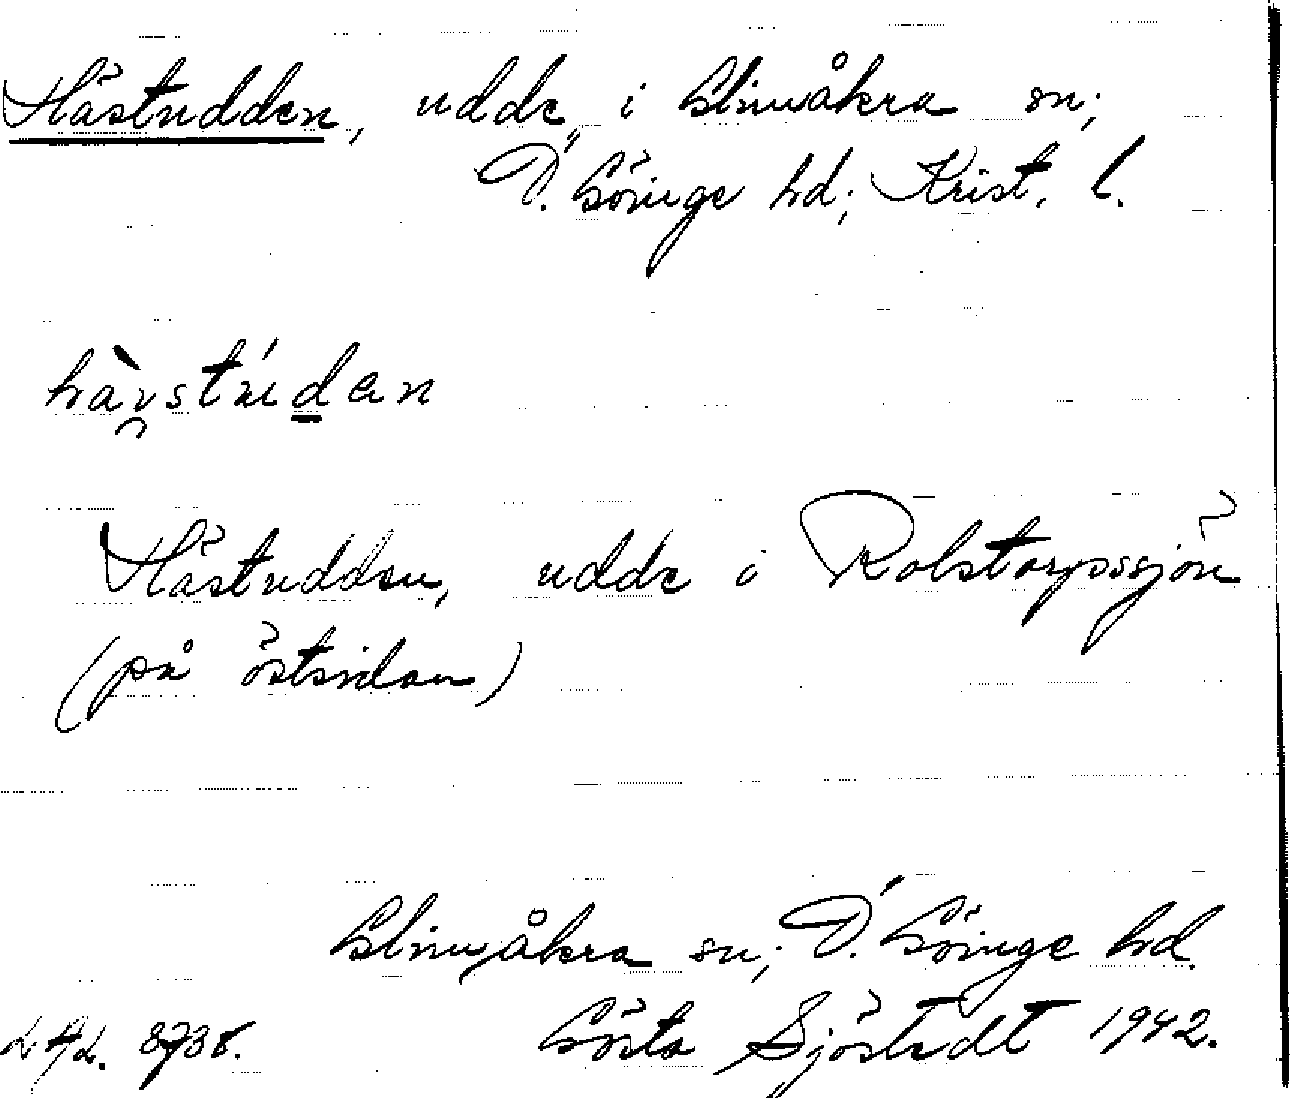 Hästudden, udde i Glimåkra sn;
Ö. Göinge hd; Krist. l.
Hästudden, udde i Rolstorpssjön
(på östsidan)
Glimåkra sn; Ö. Göinge hd.
Gösta Sjöstedt 1942.